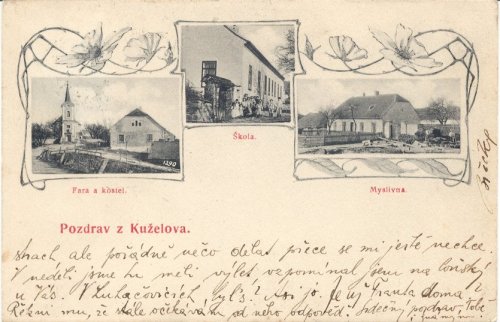 Škola.
1290
Fara a kostel.
Myslivna.
Pozdrav z Kuželova.
strach ale pořádně něco dělat přece se mi ještě nechce.
V neděli jsme měli výlet vzpomínal jsem na loňský
u Vás. V Luhačovicích byls? Asi jo. Je už Franta doma?
Řekni mu, že stále očekávám od něho odpověd. Srdečný pozdrav, Tobě